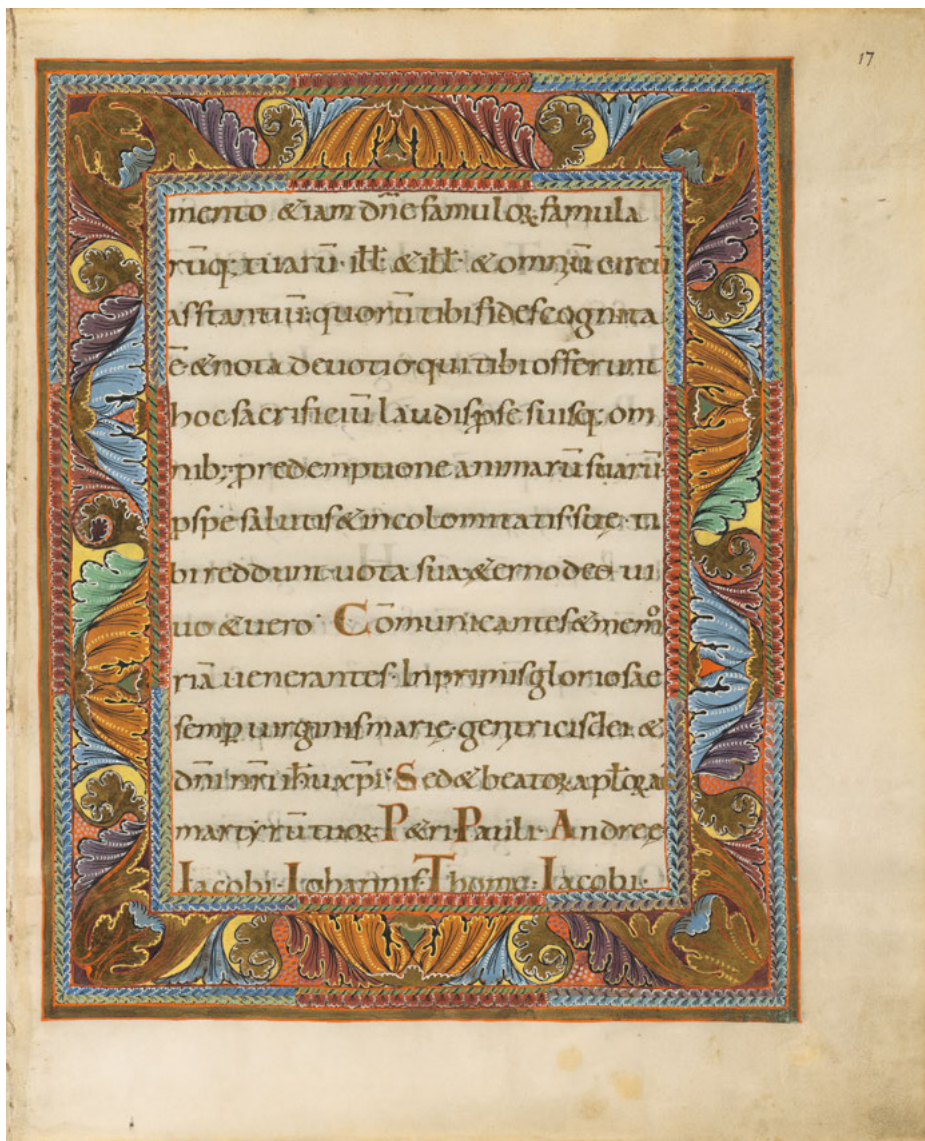 17
mento &iam dn̄e famuloꝝ· famula
rūq; tuarū· ill̄ &ill̄· &omniū circū
asstantiū· quorū tibi fides cognita
ē &nota deuotio· qui tibi offerunt
hoc sacrificiū laudis· ꝓ se suisq; om
nib;· ꝓ redemptione animarū suarū·
ꝓ spe salutis &incolomitatis sue· ti
bi reddunt uota sua &erno deo ui
uo &uero· Cōmunicantes &memo
riā uenerantes· Inprimis gloriosae
semꝑ uirginis marię· genitricis dei &
dn̄i nr̄i ih̄u xp̄i· Sed &beatoꝝ apl̄oꝝ ac
martyrū tuoꝝ· P&ri· Pauli· Andreę
Iacobi· Iohannis· Thomę· Iacobi·